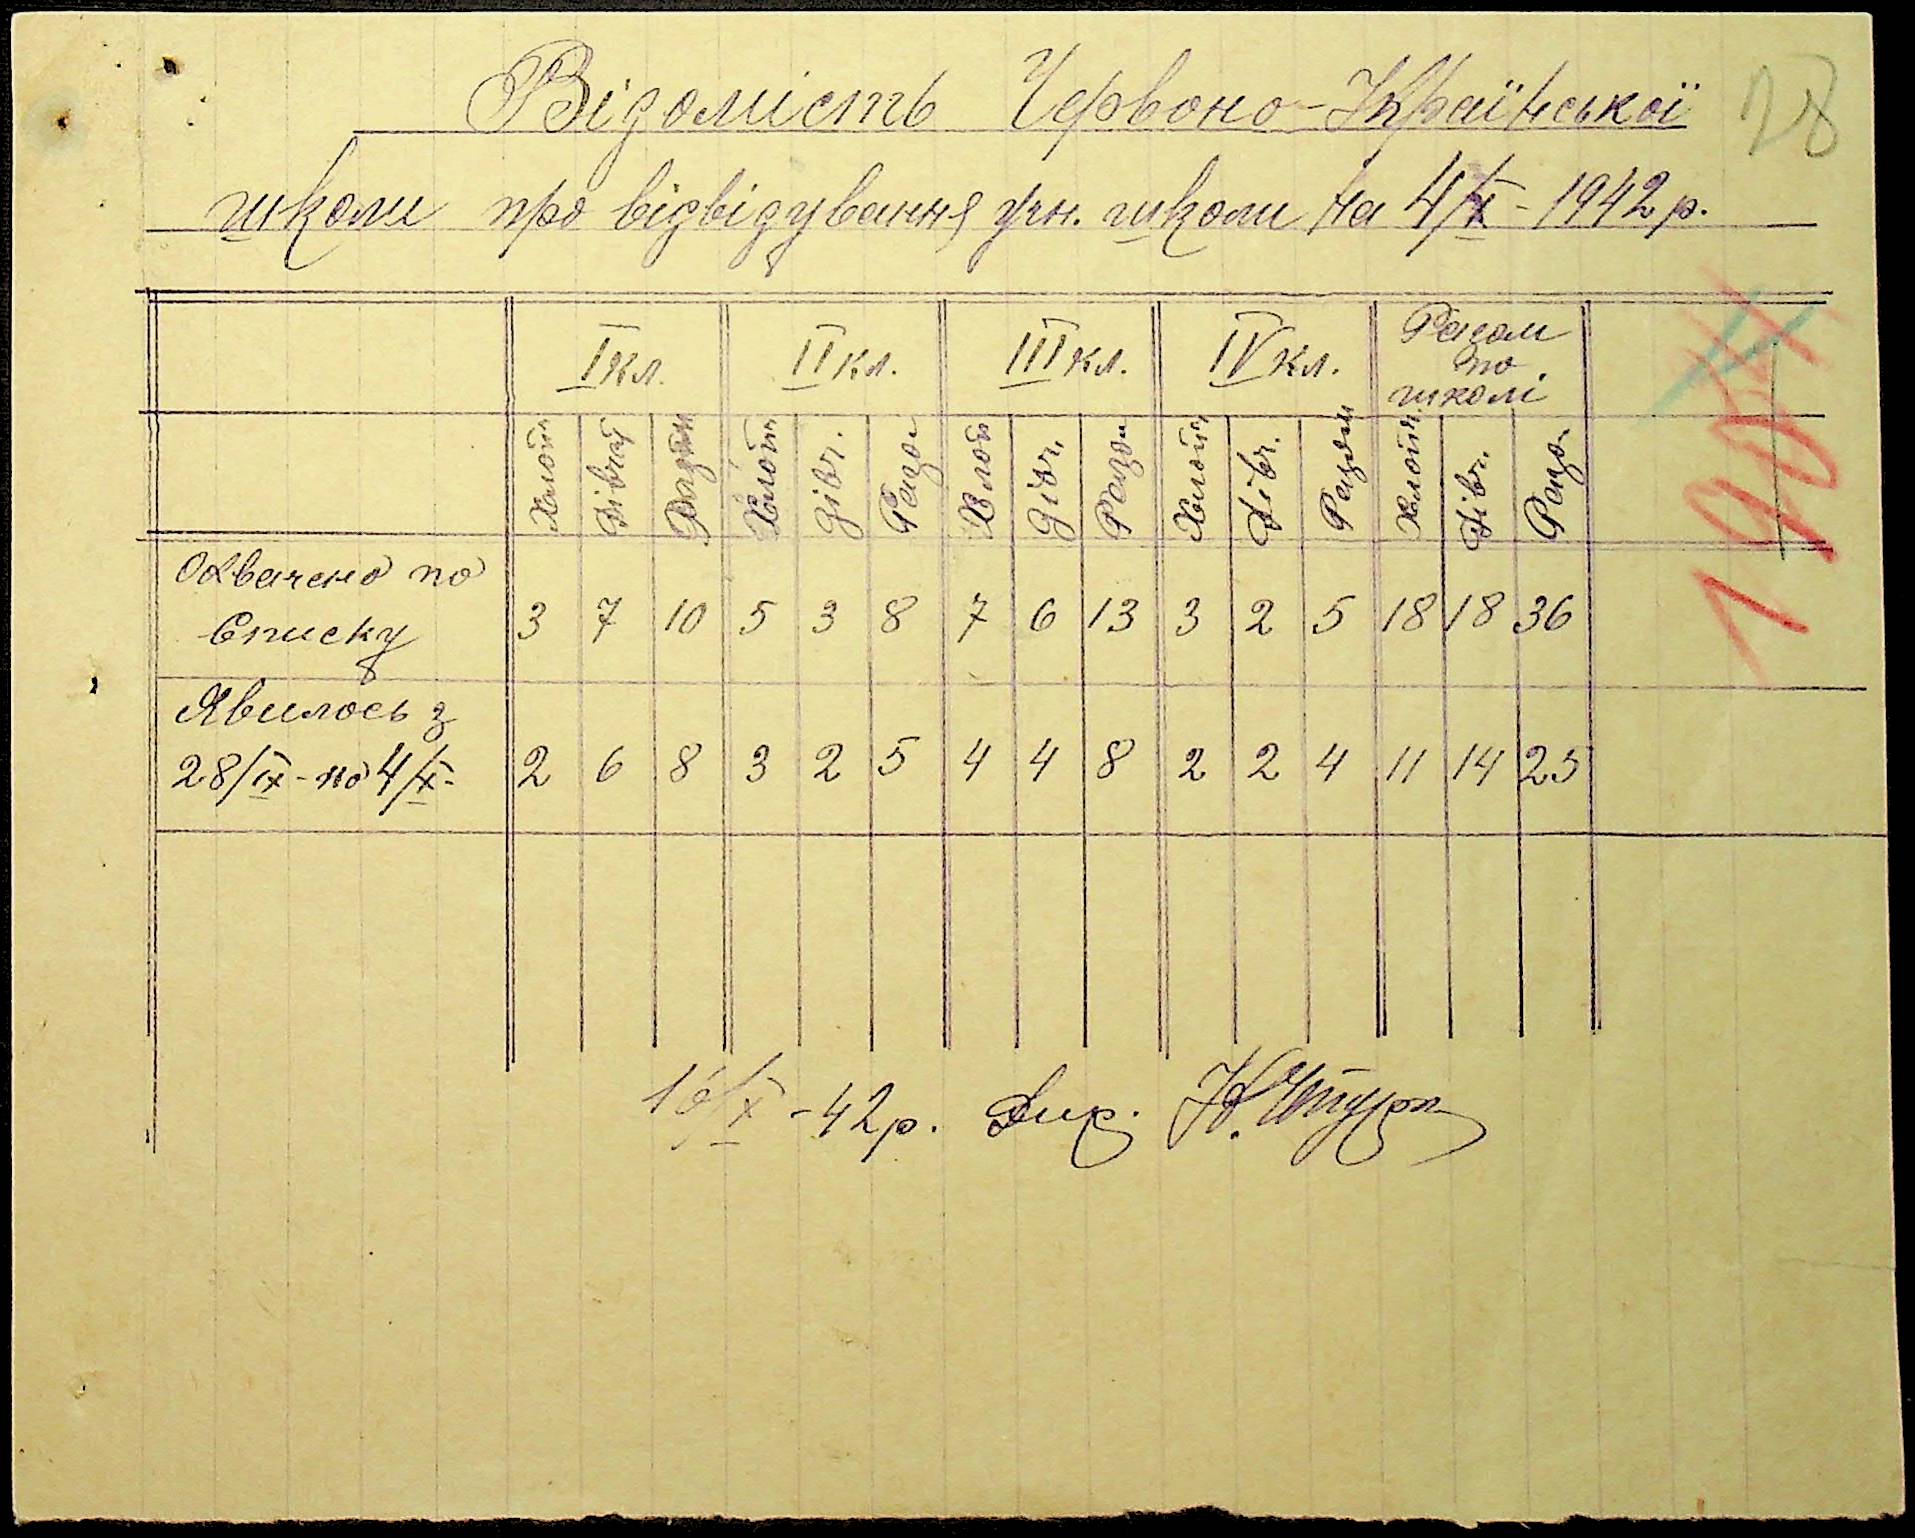 28
Відомість Червоно-Української
школи про відвідування учн. школи на 4/X - 1942 р.
I кл. II кл. III кл. IV кл. Разом
по
школі
Хлопч. Дівчат Разом Хлопч. Дівч. Разо- Хлоп Дівч. Разо- Хлопч Дівч. Разом Хлопч. Дівч. Разо-
Охвачено по
Списку 3 7 10 5 3 8 7 6 13 3 2 5 18 18 36
Явилось з
28/IX - по 4/X - 2 6 8 3 2 5 4 4 8 2 2 4 11 14 25
/X - 42 р. Дир.